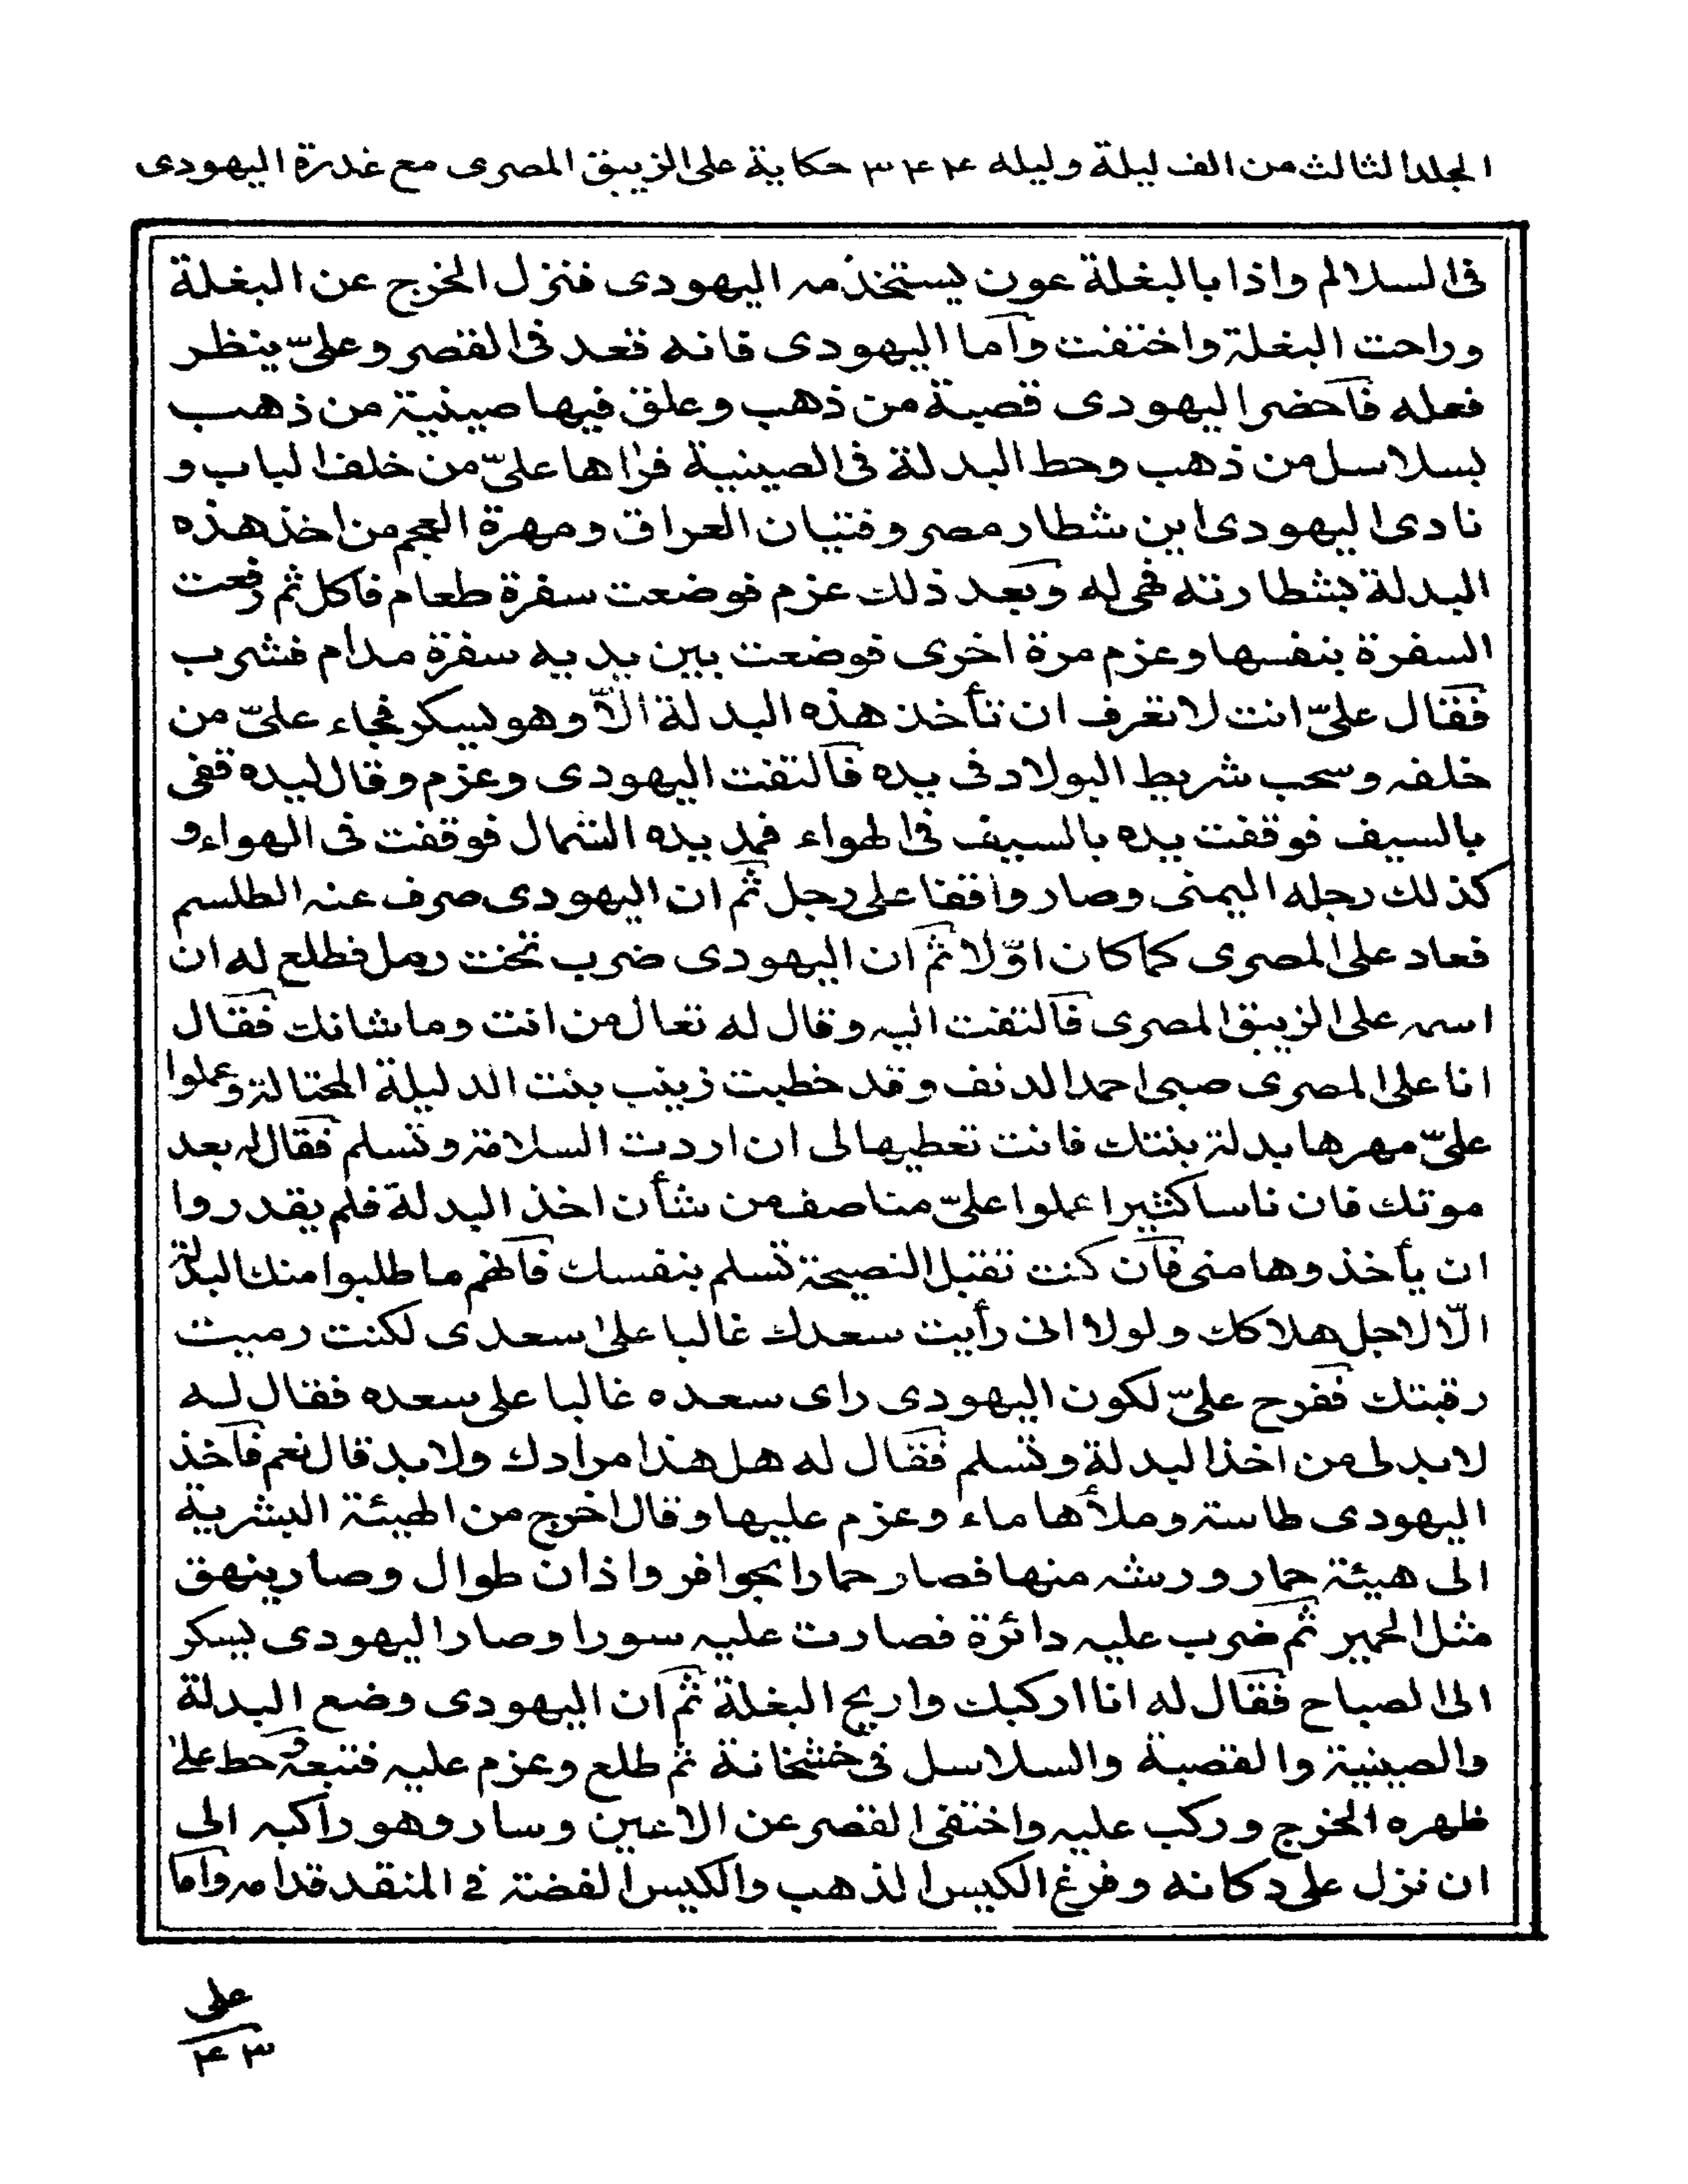 الجلد الثالث من الف ليلة وليله ٣٤٤ حكاية على الزيبق المصرى مع غدرة اليهودى
فى السلالم واذا بالبغلة عون يستخدمه اليهودى فنزل الخرج عن البغلة
وراحت البغلة واختفت وأما اليهودى فانه قعد فى القصر وعلىّ ينظر
فعله فأحضر اليهودى قصبة من ذهب وعلق فيها صينية من ذهب
بسلاسل من ذهب وحط البدلة فى الصينية فرأها علىّ من خلف الباب و
نادى اليهودى اين شطار مصر وفتيان العراق ومهرة العجم من اخذ هذه
البدلة بشطارته فهى له وبعد ذلك عزم فوضعت سفرة طعام فاكل ثم رفعت
السفرة بنفسها وعزم مرة اخرى فوضعت بين يديه سفرة مدام فشرب
فقال علىّ انت لا تعرف ان تأخذ هذه البدلة الّا وهو يسكر فجاء علىّ من
خلفه وسحب شريط البولاد فى يده فالتفت اليهودى وعزم وقال ليده قفى
بالسيف فوقفت يده بالسيف فى الهواء فمد يده الشمال فوقفت فى الهواء و
كذلك رجله اليمنى وصار واقفا على رجل ثم ان اليهودى صرف عنه الطلسم
فعاد على المصرى كما كان اوّلا ثم ان اليهودى ضرب تخت رمل فطلع له ان
اسمه على الزيبق المصرى فالتفت اليه وقال له تعال من انت وما شانك فقال
انا على المصرى صبى احمد الدنف وقد خطبت زينب بنت الدليلة المحتالة وعملوا
علىّ مهرها بدلة بنتك فانت تعطيها لى ان اردت السلامة وتسلم فقال له بعد
موتك فان ناسا كثيرا عملوا علىّ مناصف من شأن اخذ البدلة فلم يقدروا
ان يأخذوها منى فان كنت تقبل النصيحة تسلم بنفسك فانهم ما طلبوا منك البدلة
الّا لاجل هلاكك ولولا انى رأيت سعدك غالبا على سعدى لكنت رميت
رقبتك ففرح علىّ لكون اليهودى راى سعده غالبا على سعده فقال له
لا بد لى من اخذ البدلة وتسلم فقال له هل هذا مرادك ولا بد قال نعم فأخذ
اليهودى طاسة وملأها ماء وعزم عليها وقال اخرج من الهيئة البشرية
الى هيئة حمار ورشه منها فصار حمارا بحوافر واذان طوال وصار ينهق
مثل الحمير ثم ضرب عليه دائرة فصارت عليه سورا وصار اليهودى يسكر
الى الصباح فقال له انا اركبك واريح البغلة ثم ان اليهودى وضع البدلة
والصينية والقصبة والسلاسل فى خشخانة ثم طلع وعزم عليه فتبعه وحط على
ظهره الخرج وركب عليه واختفى القصر عن الاعين وسار وهو راكبه الى
ان نزل على دكانه وفرغ الكيس الذهب والكيس الفضة فى المنقد قدامه وأما
على
٤٣